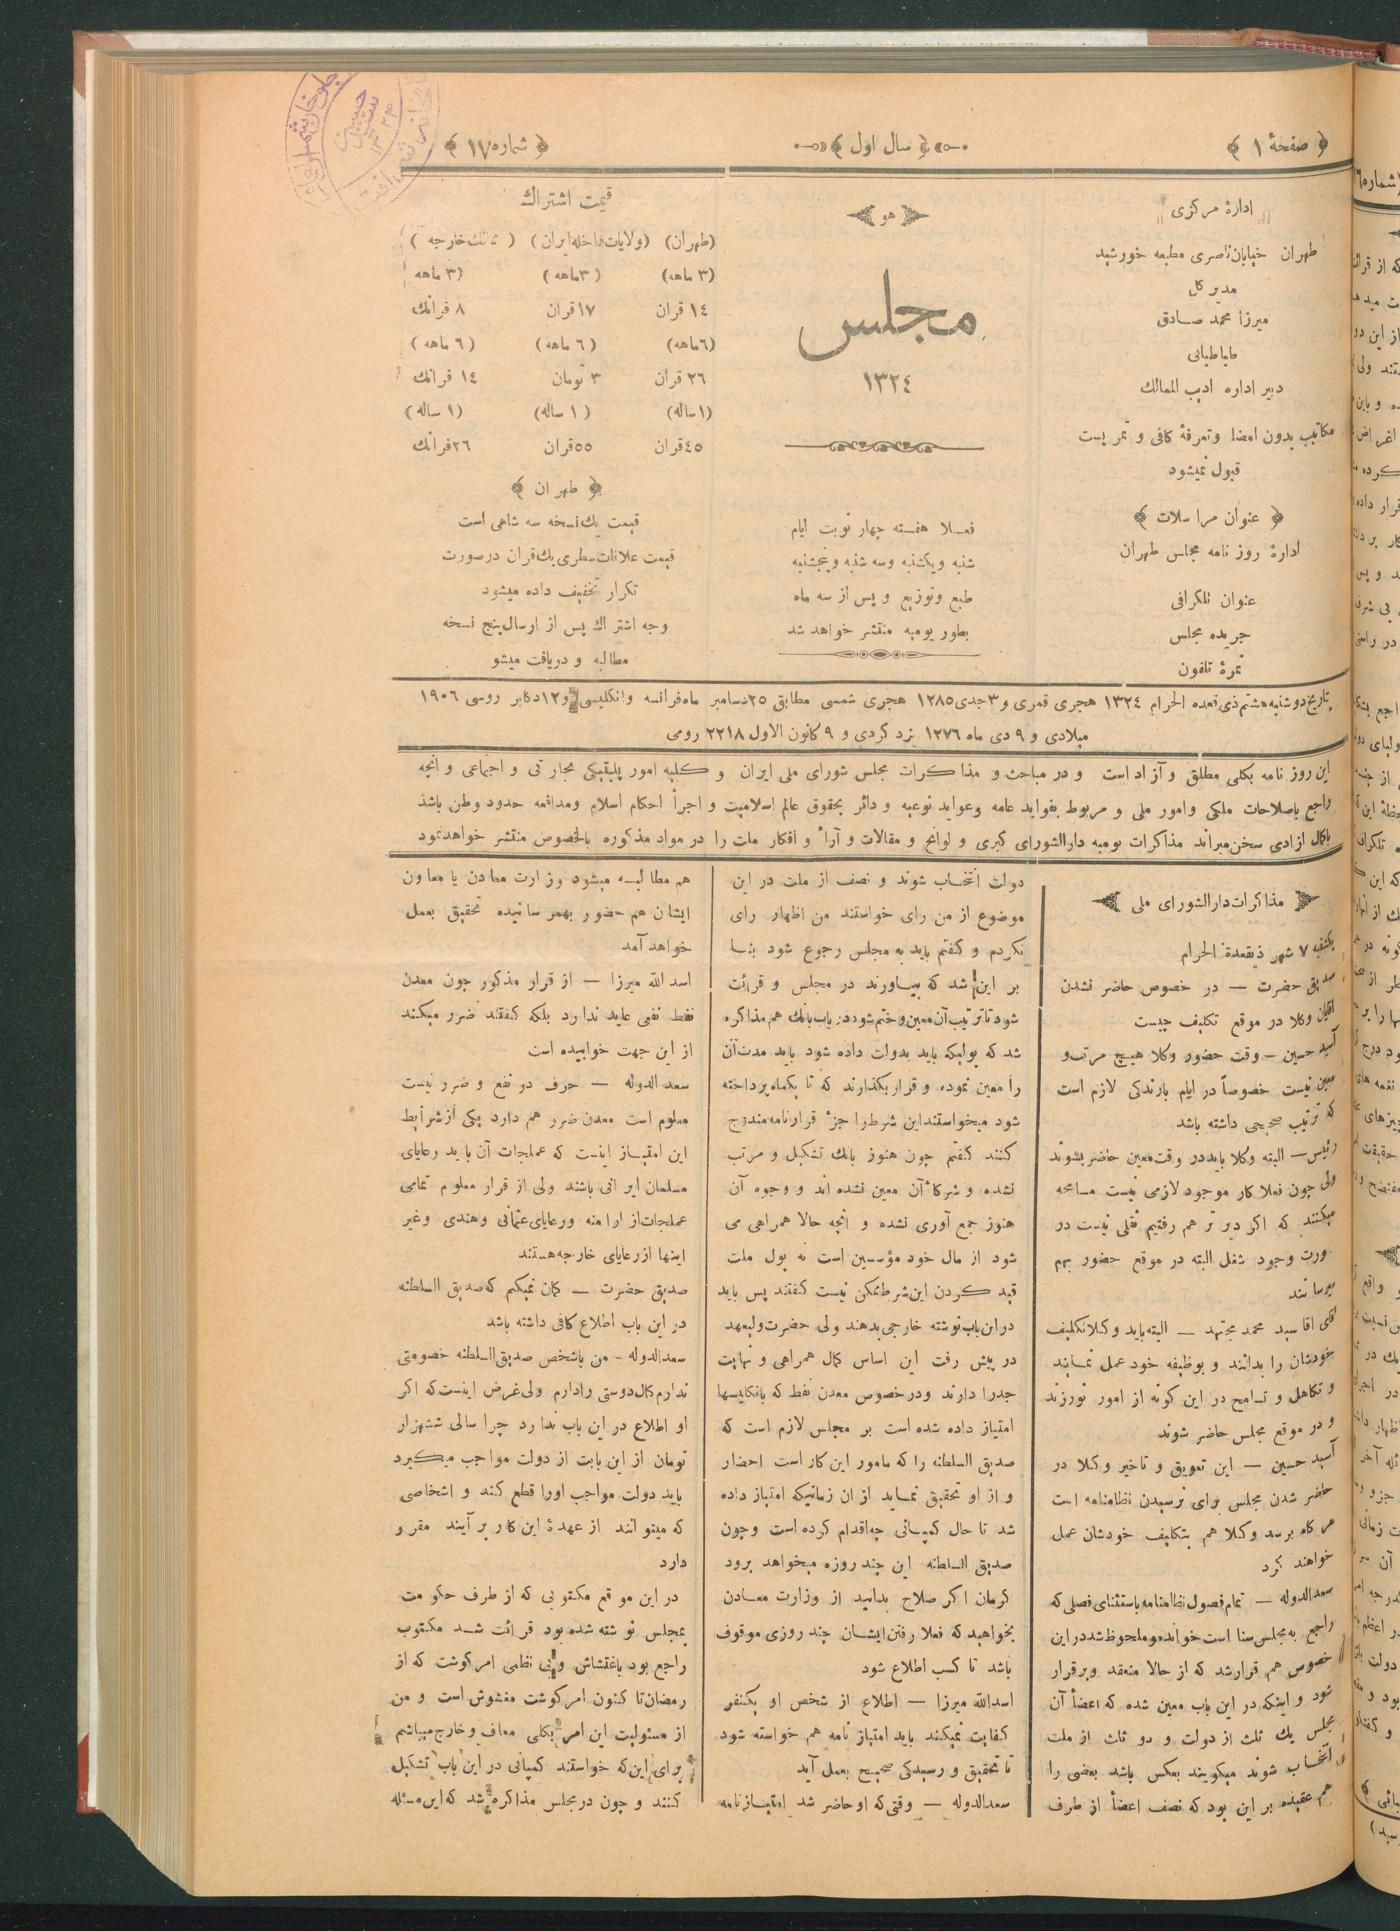 صفحهٔ ۱
سال اول
شماره ۱۷
ادارهٔ مرکزی
طهران خیابان ناصری مطبعه خورشید
مدیر کل
میرزا محمد صادق
طباطبائی
دبیر اداره ادیب الممالك
مکاتیب بدون امضا وتعرفهٔ کافی و تمر پست
قبول نمیشود
عنوان مراسلات
ادارهٔ روز نامه مجلس طهران
عنوان تلکرافی
جریده مجلس
نمرهٔ تلفون
هو
مجلس
۱۳۲٤
فعلا هفته چهار نوبت ایام
شنبه ویکشنبه وسه شنبه وپنجشنبه
طبع وتوزیع و پس از سه ماه
بطور یومیه منتشر خواهد شد
قیمت اشتراك
(طهران) (ولایات داخله ایران) (ممالك خارجه)
(۳ ماهه) (۳ ماهه) (۳ ماهه)
۱٤ قران ۱۷ قران ۸ فرانك
(٦ ماهه) (٦ ماهه) (٦ ماهه)
۲٦ قران ۳ تومان ۱٤ فرانك
(۱ ساله) (۱ ساله) (۱ ساله)
٤٥ قران ٥٥ قران ۲٦ فرانك
طهران
قیمت یك نسخه سه شاهی است
قیمت علانات سطری یك قران درصورت
تکرار تخفیف داده میشود
وجه اشتراك پس از ارسال پنج نسخه
مطالبه و دریافت میشو
تاریخ دوشنبه هشتم ذی قعده الحرام ۱۳۲٤ هجری قمری و ۳ جدی ۱۲۸٥ هجری شمسی مطابق ۲٥ دسامبر ماه فرانسه وانکلیسی و ۱۲ دکابر روسی ۱۹۰٦
میلادی و ۹ دی ماه ۱۲۷٦ یزد کردی و ۹ کانون الاول ۲۲۱۸ رومی
این روز نامه بکلی مطلق و آزاد است و در مباحث و مذاکرات مجلس شورای ملی ایران و کلیه امور پلیتیکی تجارتی و اجتماعی و آنچه
راجع باصلاحات ملکی وامور ملی و مربوط بفواید عامه وعواید نوعیه و دائر بحقوق عالم اسلامیت و اجرأ احکام اسلام ومدافعه حدود وطن باشد
بکمال ازادی سخن میراند مذاکرات یومیه دارالشورای کبری و لوایح و مقالات و آرأ و افکار ملت را در مواد مذکوره بالخصوص منتشر خواهد نمود
مذاکرات دارالشورای ملی
یکشنبه ۷ شهر ذیقعدة الحرام
صدیق حضرت — در خصوص حاضر نشدن
اقایان وکلا در موقع تکلیف چیست
آسید حسین — وقت حضور وکلا هیچ مرتب و
معین نیست خصوصاً در ایام بارندکی لازم است
که ترتیب صحیحی داشته باشد
رئیس — البته وکلا باید در وقت معین حاضر بشوند
ولی چون فعلا کار موجود لازمی نیست مسامحه
میکنند که اکر دیر تر هم رفتیم نقلی نیست در
صورت وجود شغل البته در موقع حضور بهم
میرسانند
اقای اقا سید محمد مجتهد — البته باید وکلا تکلیف
خودشان را بدانند و بوظیفه خود عمل نمایند
و تکاهل و تسامح در این کونه از امور نورزند
و در موقع مجلس حاضر شوند
آسید حسین — این تعویق و تاخیر وکلا در
حاضر شدن مجلس برای نرسیدن نظامنامه است
هر کاه برسد وکلا هم بتکلیف خودشان عمل
خواهند کرد
سعدالدوله — تمام فصول نظامنامه باستثنای فصلی که
راجع به مجلس سنا است خوانده و ملحوظ شد در این
خصوص هم قرار شد که از حالا منعقد وبرقرار
شود و اینکه در این باب معین شده که اعضأ آن
مجلس یك ثلث از دولت و دو ثلث از ملت
انتخاب شوند میکویند بعکس باشد بعضی را
هم عقیده بر این بود که نصف اعضأ از طرف
دولت انتخاب شوند و نصف از ملت در این
موضوع از من رای خواستند من اظهار رای
نکردم و کفتم باید به مجلس رجوع شود بنا
بر این شد که بیاورند در مجلس و قرائت
شود تا ترتیب آن معین و ختم شود در باب بانك هم مذاکره
شد که پولیکه باید بدولت داده شود باید مدت آن
را معین نموده و قرار بکذارند که تا یکماه پرداخته
شود میخواستند این شرط را جزء قرار نامه مندرج
کنند کفتم چون هنوز بانك تشکیل و مرتب
نشده و شرکأ آن معین نشده اند و وجوه آن
هنوز جمع آوری نشده و انچه حالا همراهی می
شود از مال خود مؤسسین است نه پول ملت
قید کردن این شرط ممکن نیست کفتند پس باید
در این باب نوشته خارجی بدهند ولی حضرت ولیعهد
در پیش رفت این اساس کمال همراهی و نهایت
جدرا دارند ودر خصوص معدن نفط که بانکلیسها
امتیاز داده شده است بر مجلس لازم است که
صدیق السلطنه را که مامور این کار است احضار
و از او تحقیق نماید از ان زمانیکه امتیاز داده
شد تا حال کمپانی چه اقدام کرده است وچون
صدیق السلطنه این چند روزه میخواهد برود
کرمان اکر صلاح بدانید از وزارت معادن
بخواهید که فعلا رفتن ایشان چند روزی موقوف
باشد تا کسب اطلاع شود
اسدالله میرزا — اطلاع از شخص او یکنفر
کفایت نمیکند باید امتیاز نامه هم خواسته شود
تا تحقیق و رسیدکی صحیح بعمل آید
سعدالدوله — وقتی که او حاضر شد امتیاز نامه
هم مطالبه میشود وزارت معادن یا معاون
ایشان هم حضور بهمر سانیده تحقیق بعمل
خواهد آمد
اسدالله میرزا — از قرار مذکور چون معدن
نفط نفعی عاید ندارد بلکه کفتند ضرر میکند
از این جهت خوابیده است
سعد الدوله — حرف در نفع و ضرر نیست
معلوم است معدن ضرر هم دارد یکی از شرایط
این امتیاز اینست که عملجات آن باید رعایای
مسلمان ایرانی باشند ولی از قرار معلوم تمامی
عملجات از ارامنه ورعایای عثمانی وهندی وغیر
اینها از رعایای خارجه هستند
صدیق حضرت — کمان نمیکنم که صدیق السلطنه
در این باب اطلاع کافی داشته باشد
سعدالدوله — من باشخص صدیق السلطنه خصومتی
ندارم کمال دوستی را دارم ولی غرض اینست که اکر
او اطلاع در این باب ندارد چرا سالی ششهزار
تومان از این بابت از دولت مواجب میکیرد
باید دولت مواجب اورا قطع کند و اشخاصی
که میتوانند از عهدهٔ این کار بر آیند مقرر و
دارد
در این موقع مکتوبی که از طرف حکومت
بمجلس نوشته شده بود قرائت شد مکتوب
راجع بود باغتشاش و بی نظمی امر کوشت که از
رمضان تا کنون امر کوشت مغشوش است و من
از مسئولیت این امر بکلی معاف وخارج میباشم
برای این که خواستند کمپانی در این باب تشکیل
کنند و چون در مجلس مذاکره شد که این مسئله